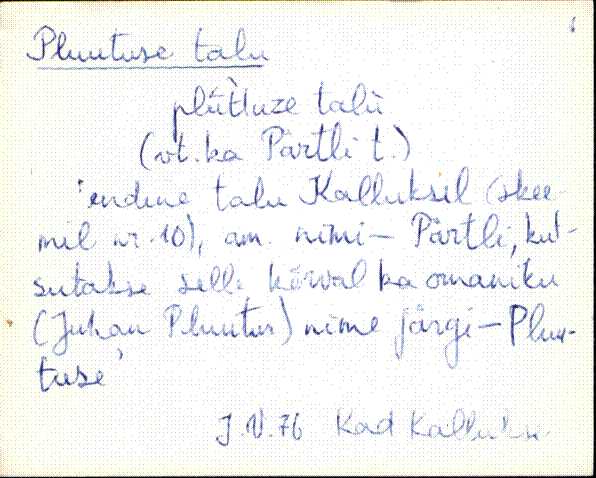 Pluutuse talu
plùt̀tuze talù
(vt. ka Pärtli t.)
'endine talu Kalluksil (skee-
mil nr. 10), am. nimi – Pärtli, kut-
sutakse selle kõrval ka omaniku
(Juhan Pluutus) nime järgi – Pluu-
tuse'
J.V. 76 Kad Kalluks